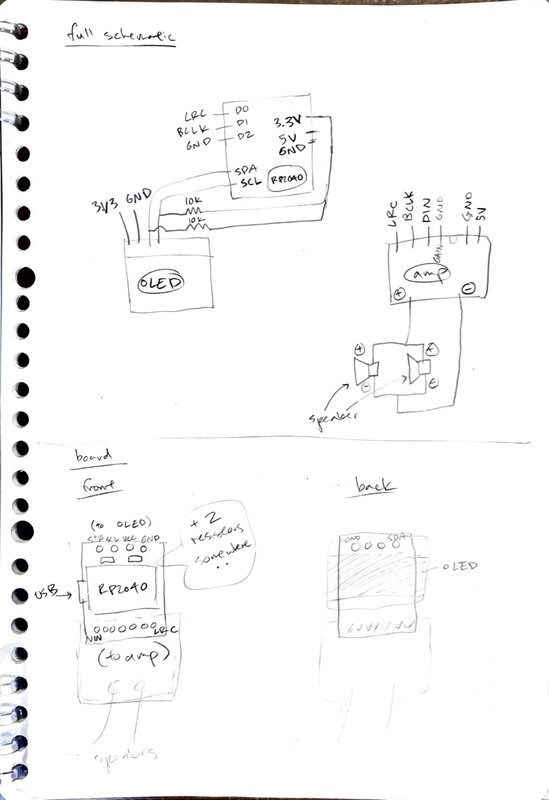 full schematic
LRC D0
BCLK D1
GND D2
3.3V
5V
GND
SDA
SCL
RP2040
3V3 GND
10K
10K
OLED
LRC
BCLK
DIN
GND
GND
5V
GAIN
amp
+
-
+
-
+
-
speaker
board
front
(to OLED)
SDA SCL VCC GND
+ 2
resistors
somewhere
..
USB
RP2040
VIN
LRC
(to amp)
speakers
back
GND
SDA
OLED